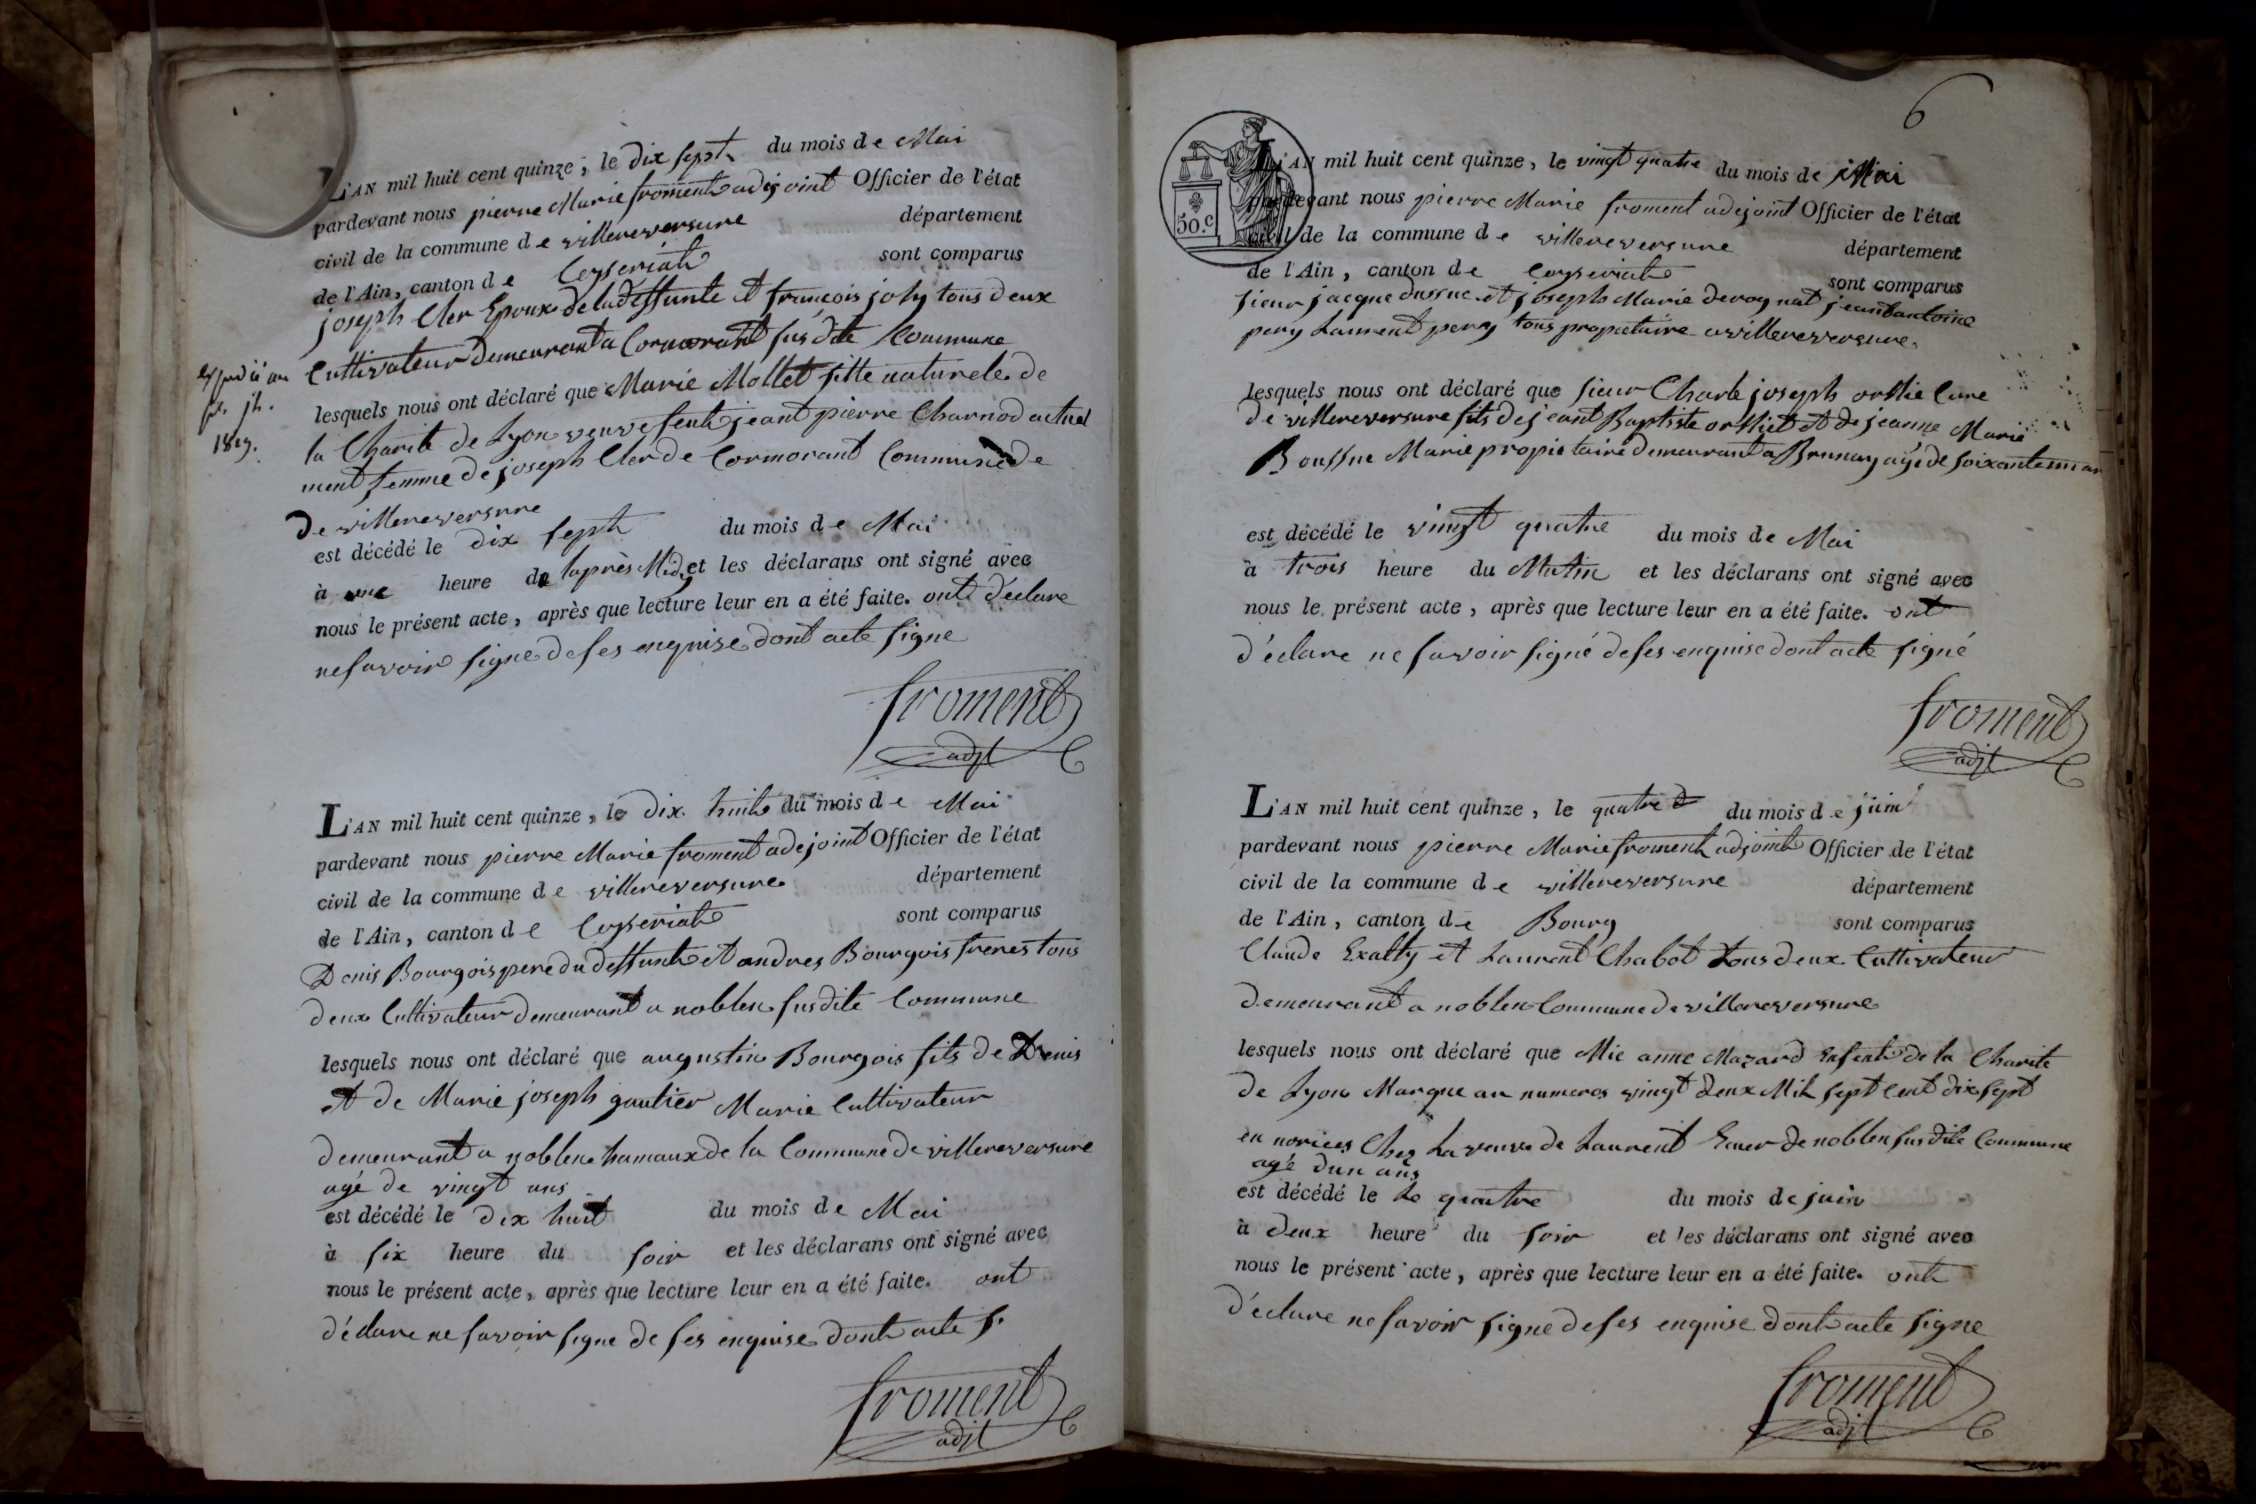 L'AN mil huit cent quinze, le dix sept du mois de Mai
pardevant nous pierre Marie froment adejoint Officier de l'état
civil de la commune de villereversure département
de l'Ain, canton de Ceyseriat sont comparus
joseph Cler Epoux de la deffunte et francois joly tous deux
Cultivateur demeurant a Cormorant susdite Commune
lesquels nous ont déclaré que Marie Mollet fille naturele de
la Charite de Lyon veuve jeant pierre Charnod actuel
ment femme de joseph Cler de Cormorant Commune de
De villereversure
est décédé le dix sept du mois de Mai
à une heure de laprès Midy et les déclarans ont signé avec
nous le présent acte, après que lecture leur en a été faite. ont déclare
ne savoir signe de ses enquise dont acte signe
froment
adjt
1819.
L'AN mil huit cent quinze, le dix huit du mois de Mai
pardevant nous pierre Marie froment adejoint Officier de l'état
civil de la commune de villereversure département
de l'Ain, canton de Ceyseriat sont comparus
Denis Bourgois pere du deffunt et andres Bourgois freres tous
deux Cultivateur demeurant a noblen susdite Commune
lesquels nous ont déclaré que augustin Bourgois fils de Denis
et de Marie joseph gautier Marie Cultivateur
demeurant a noblen hamaux de la Commune de villereversure
agé de vingt ans
est décédé le dix huit du mois de Mai
à six heure du soir et les déclarans ont signé avec
nous le présent acte, après que lecture leur en a été faite. ont
déclare ne savoir signe de ses enquise dont acte s.
froment
adjt
6
50.c
L'AN mil huit cent quinze, le vingt quatre du mois de Mai
pardevant nous pierre Marie froment adejoint Officier de l'état
civil de la commune de villereversure département
de l'Ain, canton de Ceyseriat sont comparus
sieur jacque dussuc et joseph Marie deroynat jeant antoine
pery Laurent pery tous propietaire a villereversure.
lesquels nous ont déclaré que sieur Charle joseph orthie Cure
de villereversure fils de jeant Baptiste orthiet et de jeanne Marie
Boussue Marie propietaire demeurant a Brunay agé de soixante
est décédé le vingt quatre du mois de Mai
à trois heure du Matin et les déclarans ont signé avec
nous le présent acte, après que lecture leur en a été faite. ont
déclare ne savoir signé de ses enquise dont acte signé
froment
adjt
L'AN mil huit cent quinze, le quatre du mois de juin
pardevant nous pierre Marie froment adjoint Officier de l'état
civil de la commune de villereversure département
de l'Ain, canton de Bourg sont comparus
Claude Exalty et Laurent Chabot tous deux Cultivateur
demeurant a noblen Commune de villereversure
lesquels nous ont déclaré que Mie anne Mazard Enfent de la Charite
de Lyon Marque au numeros vingt deux Mil sept cent dix sept
en norices Chez La veuve de Laurent Ecuer de noblen susdite Commune
agé dun ans
est décédé le Le quatre du mois de juin
à deux heure du soir et les déclarans ont signé avec
nous le présent acte, après que lecture leur en a été faite. ont
déclare ne savoir signe de ses enquise dont acte signe
froment
adjt